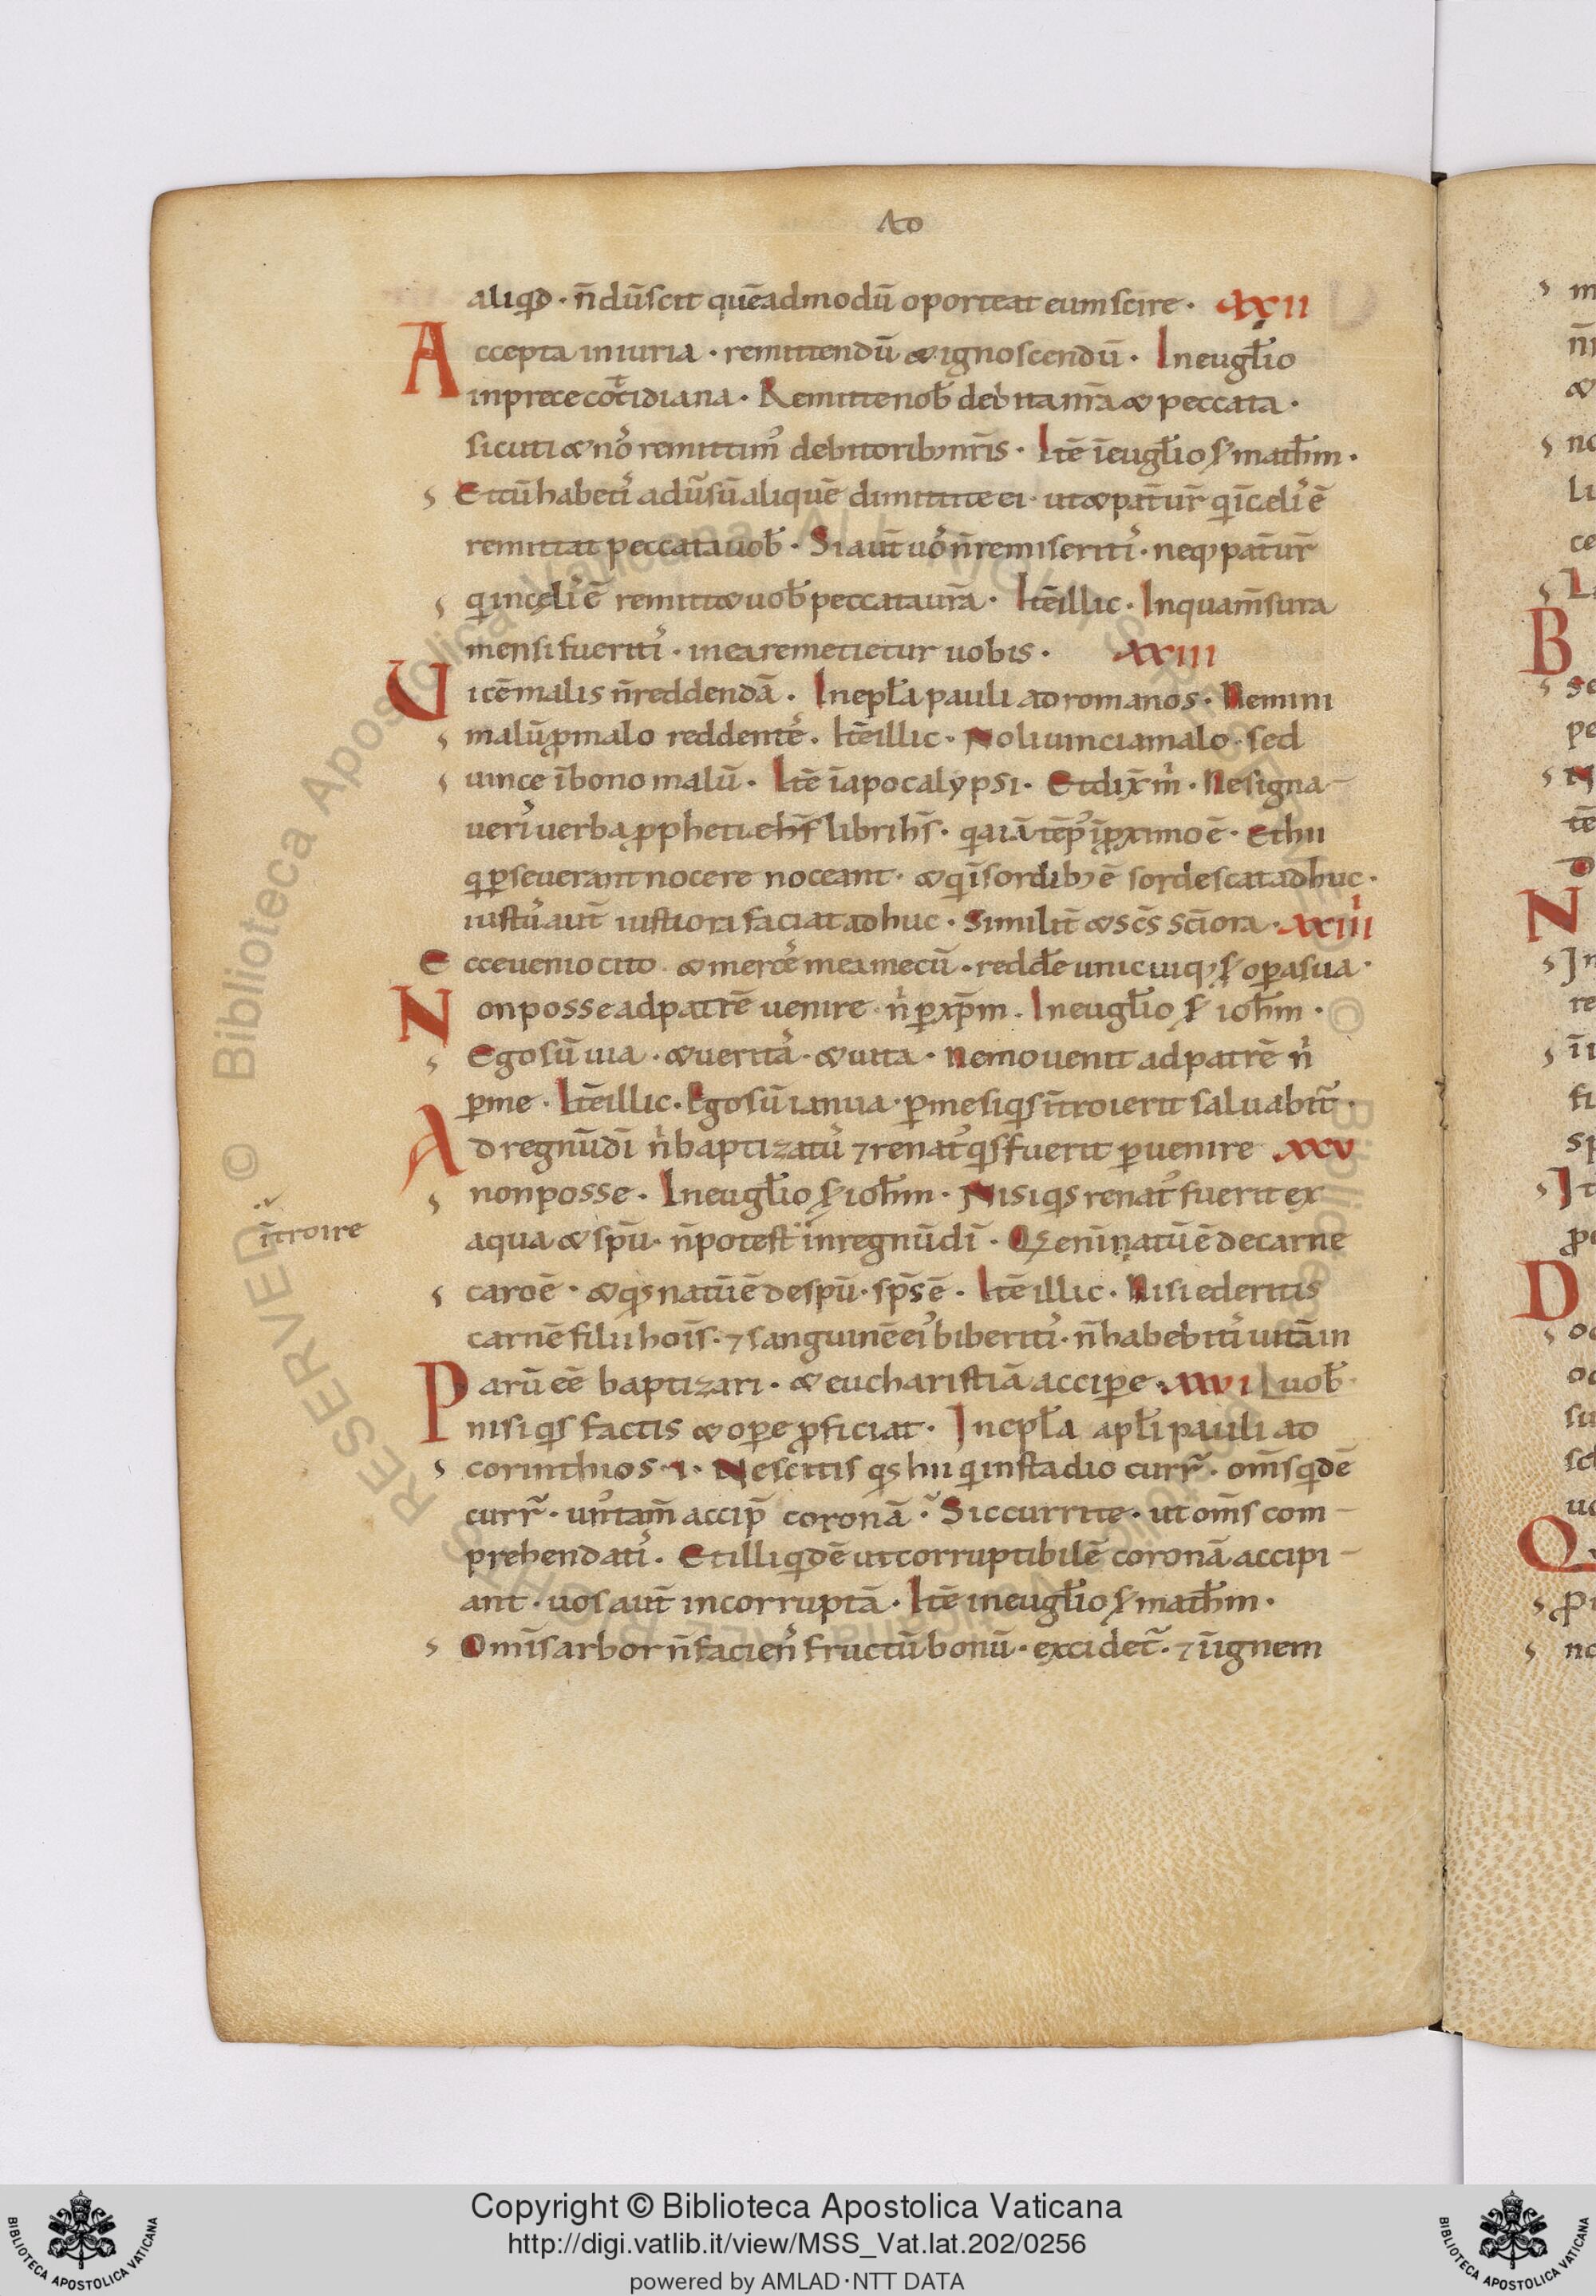 AD
aliqđ · n̄ dū scit quēadmodū oporteat eum scire · XXII
Accepta iniuria · remittendū & ignoscendū · In eugłio
in prece cotidiana · Remitte nob̄ debita nr̄a & peccata ·
sicuti & nos remittim' debitorib; nr̄is · Itē ī eugłio s̄ math̄m ·
Et cū habetis adūsū aliquē dimittite ei · ut & pat̄ ur̄ q ī celis ē
remittat peccata uob̄ · Si aut̄ uos n̄ remiseritis · neq; pat̄ ur̄
qui in celis ē remitt& uob̄ peccata ur̄a · Itē illic · In qua m̄sura
mensi fueritis · in ea remetietur uobis · XXIII
Vicē malis n̄ reddendā · In epła pauli ad romanos · Nemini
malū p malo reddentes · Itē illic · Noli uinci a malo · sed
uince ī bono malū · Itē ī apocalypsi · Et dix̄ m̄ · Ne signa-
ueris uerba pphetie h' libri h̄s · q̄a iā tēp' ī pximo ē · Et hii
q pseuerant nocere noceant · & q ī sordib; ē sordescat adhuc ·
iustus aut̄ iustiora faciat adhuc · Similit̄ & sc̄s sc̄iora · XXIIII
Ecce uenio cito & merces mea mecū · redde unicuiq; s̄ opa sua ·
Non posse ad patrē uenire · n̄ p xp̄m · In eugłio s̄ ioh̄m ·
Ego sū uia · & ueritas · & uita · Nemo uenit ad patrē n̄
p me · Itē illic · Ego sū ianua · p me siq̄s īntroierit saluabit̄ ·
Ad regnū dī n̄ baptizatus ⁊ renat' q̄s fuerit puenire XXV
non posse · In eugłio s̄ ioh̄m · Nisi q̄s renat' fuerit ex
īntroire
aqua & sp̄u · n̄ potest in regnū dī · Qđ enī natū ē de carne
caro ē · & qđ natū ē de sp̄u · sp̄s ē · Itē illic · Nisi ederitis
carnē filii hoīs · ⁊ sanguinē ei' biberitis · n̄ habebitis uitā in
Parū eē baptizari · & eucharistiā accipe · XXVI uob̄ ·
nisi q̄s factis & ope pficiat · In epła apłi pauli ad
corinthios · I · Nescitis q̄s hii q in stadio curr̄ · om̄s qdē
curr̄ · un' tam̄ accip̄ coronā · Sic currite · ut om̄s com-
prehendatis · Et illi qdē ut corruptibilē coronā accipi-
ant · uos aut̄ incorruptā · Itē in eugłio s̄ math̄m ·
Omīs arbor n̄ faciens fructū bonū · excidet̄ · ⁊ ī ignem
Copyright © Biblioteca Apostolica Vaticana
http://digi.vatlib.it/view/MSS_Vat.lat.202/0256
powered by AMLAD·NTT DATA
BIBLIOTECA APOSTOLICA VATICANA
BIBLIOTECA APOSTOLICA VATICANA